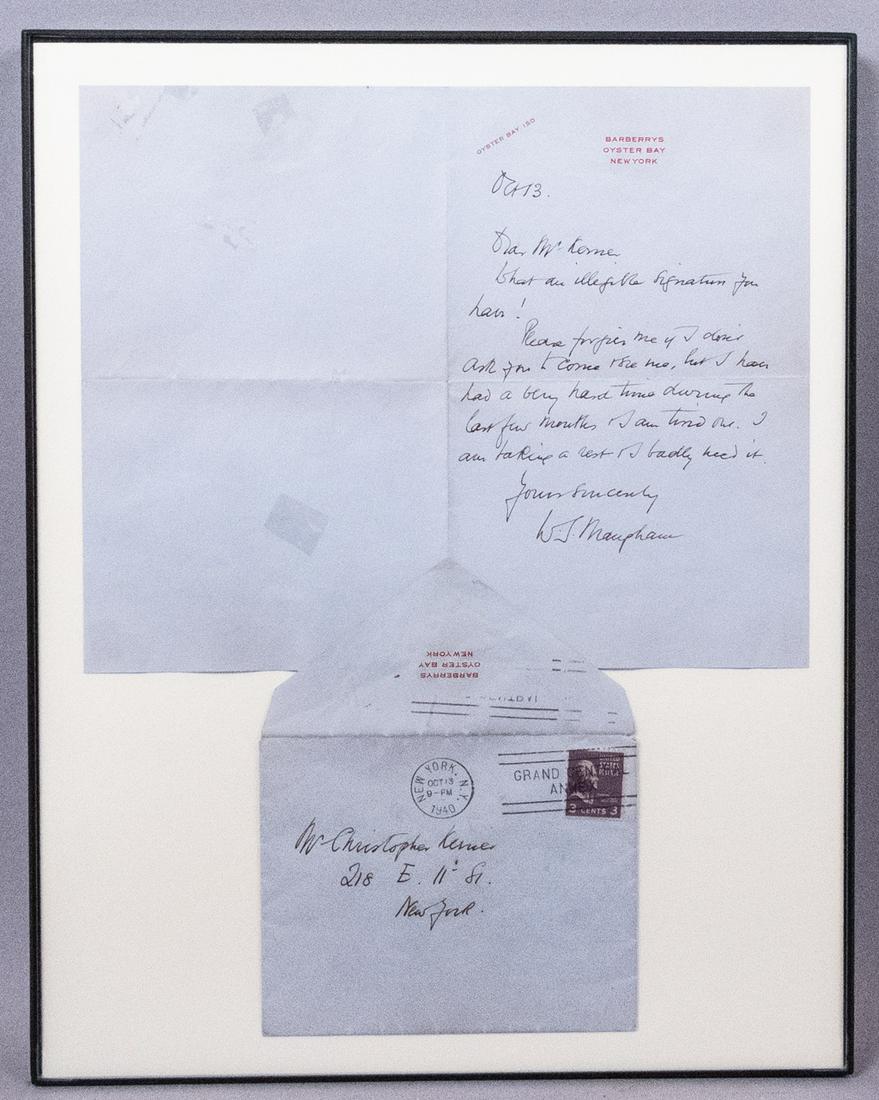 OYSTER BAY 150
BARBERRYS
OYSTER BAY
NEW YORK
Oct 13.
Dear Mr
What an illegible signature you
have!
Please forgive me if I don't
ask you to come & see me, but I have
had a very hard time during the
last few months & I am tired out. I
am taking a rest & I badly need it.
Yours sincerely
W.S. Maugham
BARBERRYS
OYSTER BAY
NEW YORK
NEW YORK, N.Y.
OCT 13
9-PM
1940
GRAND CEN
ANNEX
UNITED
STATES
3 CENTS 3
Mr Christopher
218 E. 11th St.
New York.